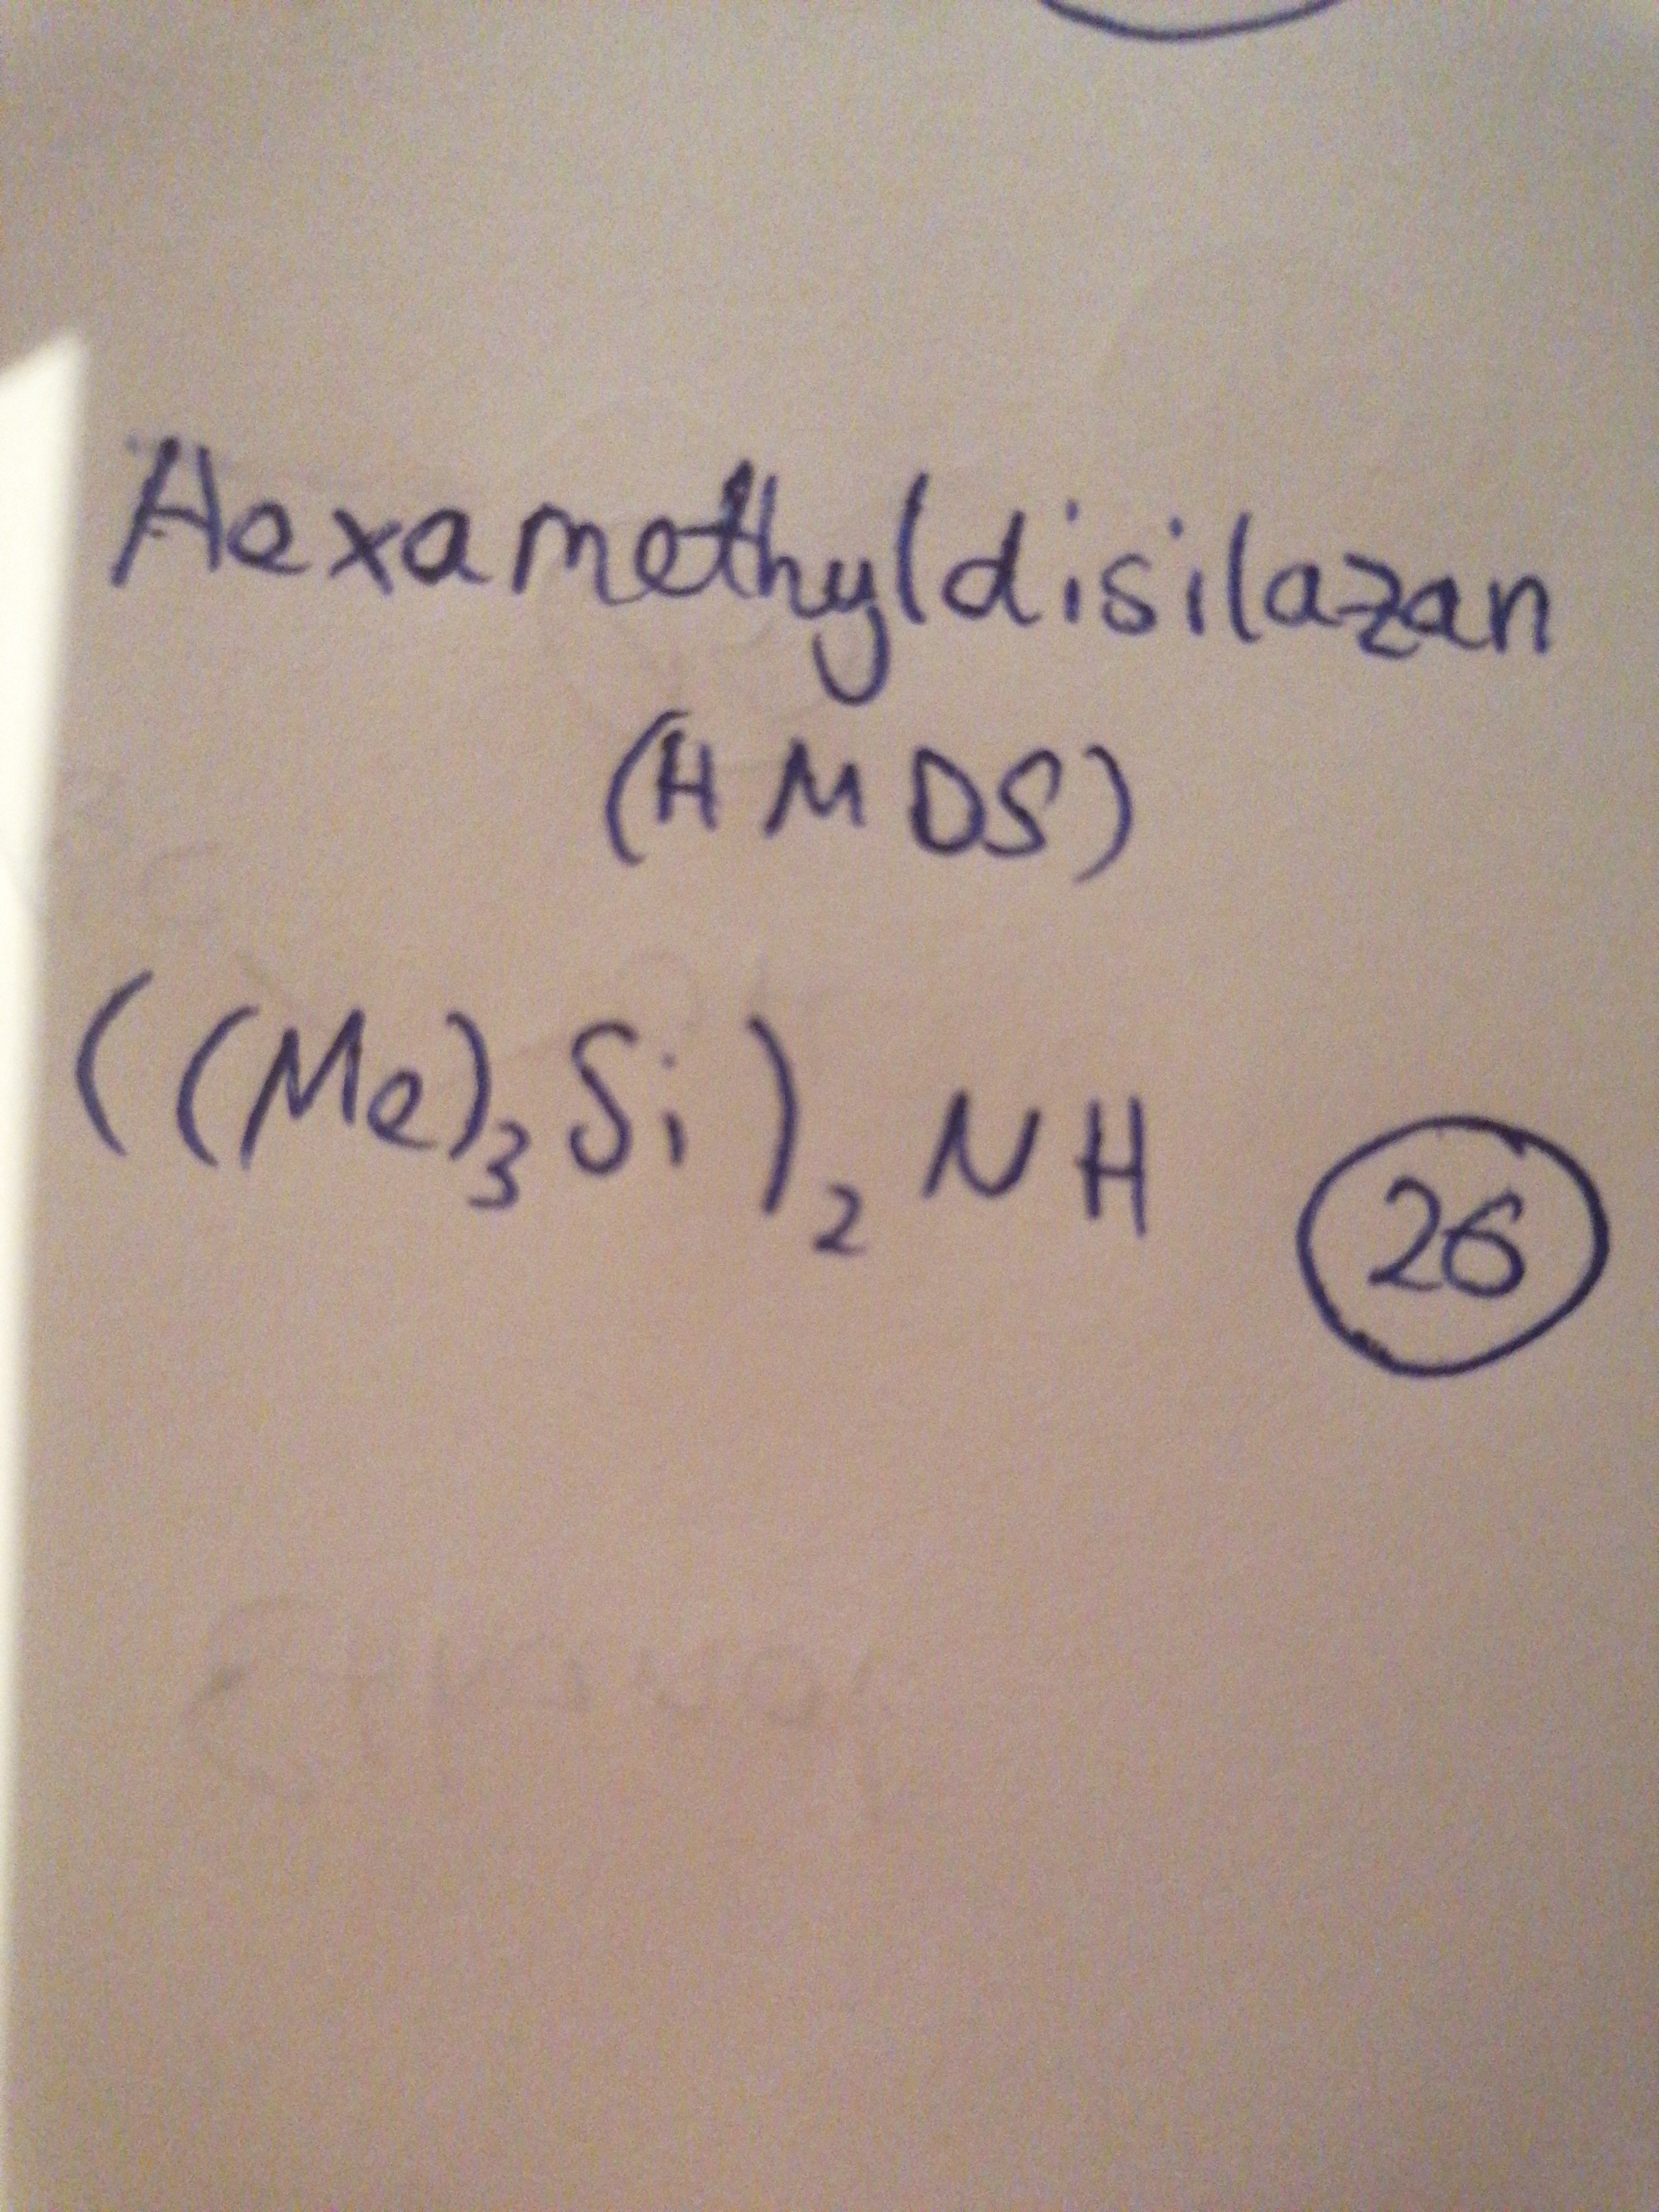 Hexamethyldisilazan
(HMDS)
((Me)₃Si)₂NH
26